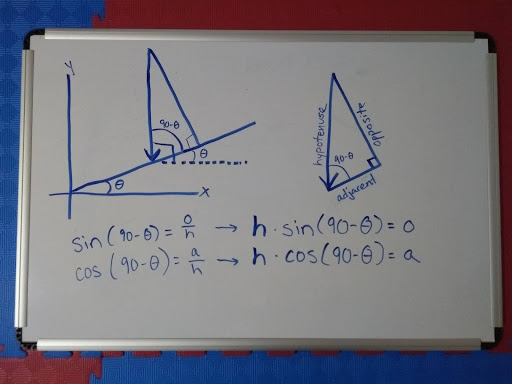 Y
90-θ
θ
θ
X
hypotenuse
opposite
90-θ
adjacent
sin(90-θ) = o/h → h·sin(90-θ) = o
cos(90-θ) = a/h → h·cos(90-θ) = a